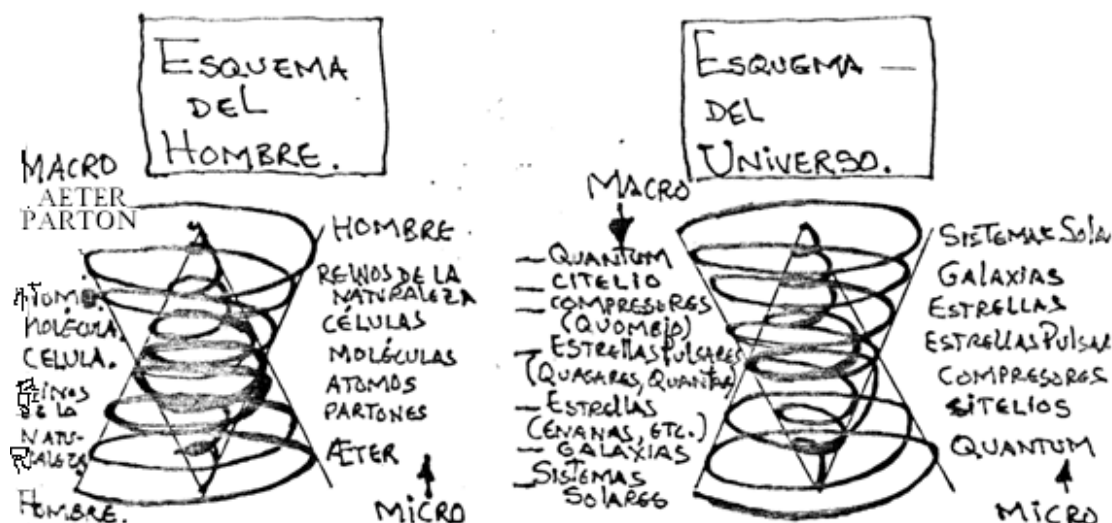 ESQUEMA
DEL
HOMBRE.
MACRO
AETER
PARTON
ATOMO.
MOLÉCULA.
CELULA.
REINOS
DE LA
NATU-
RALEZA.
HOMBRE.
HOMBRE
REINOS DE LA
NATURALEZA
CÉLULAS
MOLÉCULAS
ATOMOS
PARTONES
ÆTER
MICRO
ESQUEMA —
DEL
UNIVERSO.
MACRO
— QUANTUM
— CITELIO
— COMPRESORES
(QUOMBIO)
— ESTRELLAS PULSARES
(QUASARES, QUANTAR)
— ESTRELLAS
(ENANAS, ETC.)
— GALAXIAS
— SISTEMAS
SOLARES
SISTEMAS Sola
GALAXIAS
ESTRELLAS
ESTRELLAS Pulsar
COMPRESORES
SITELIOS
QUANTUM
MICRO